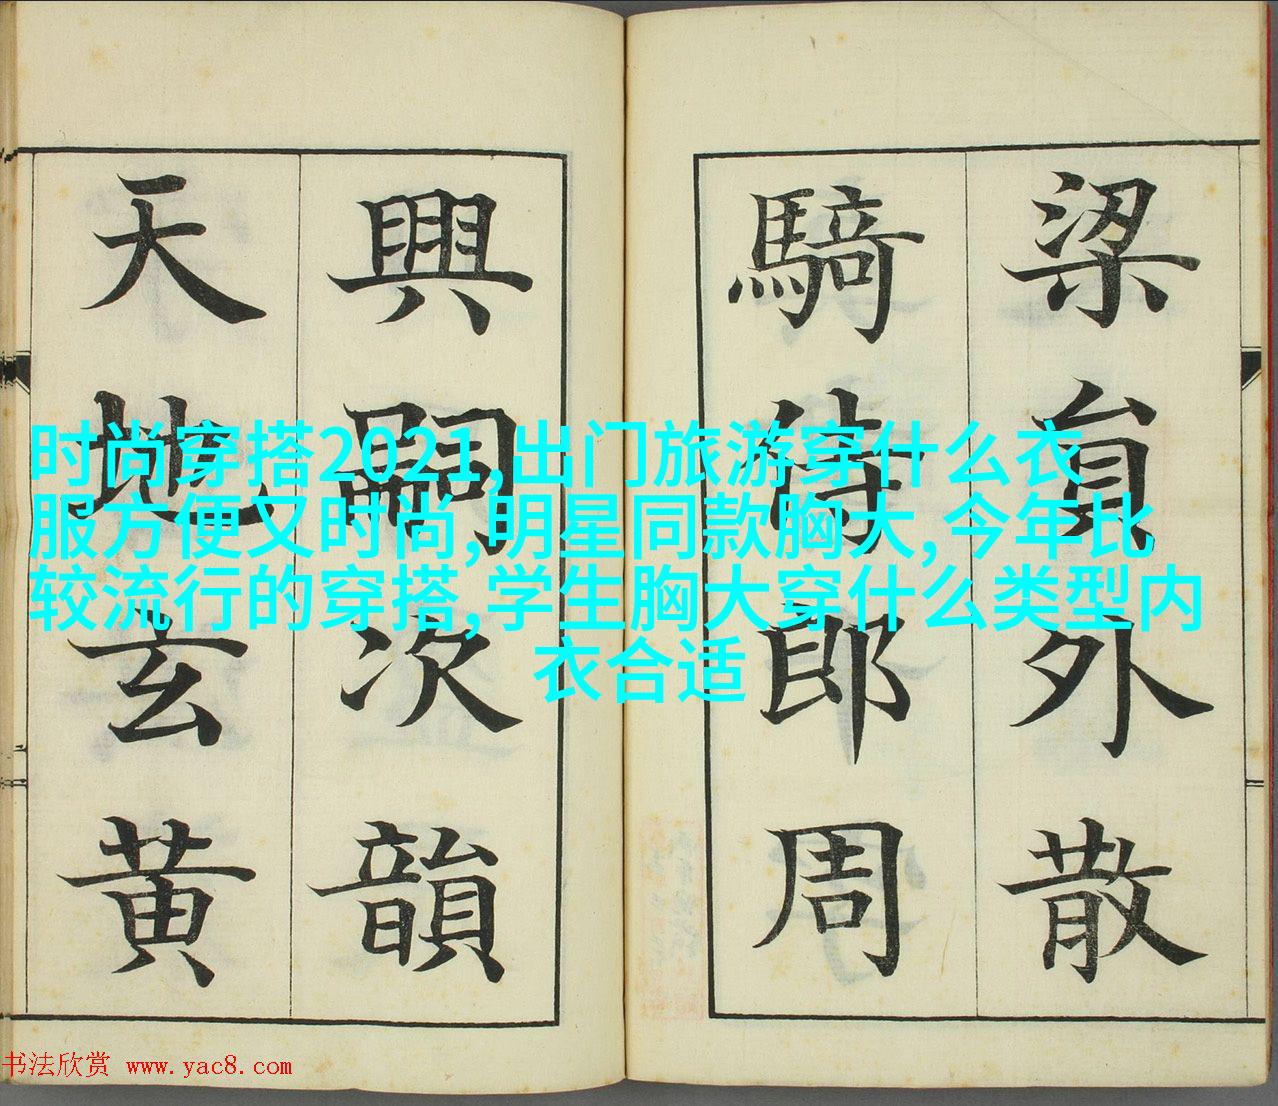 梁貟外散
騎侍郎周
興嗣次韻
天地玄黃
时尚穿搭2021,出门旅游穿什么衣
服方便又时尚,明星同款胸大,今年比
较流行的穿搭,学生胸大穿什么类型内
衣合适
书法欣赏 www.yac8.com